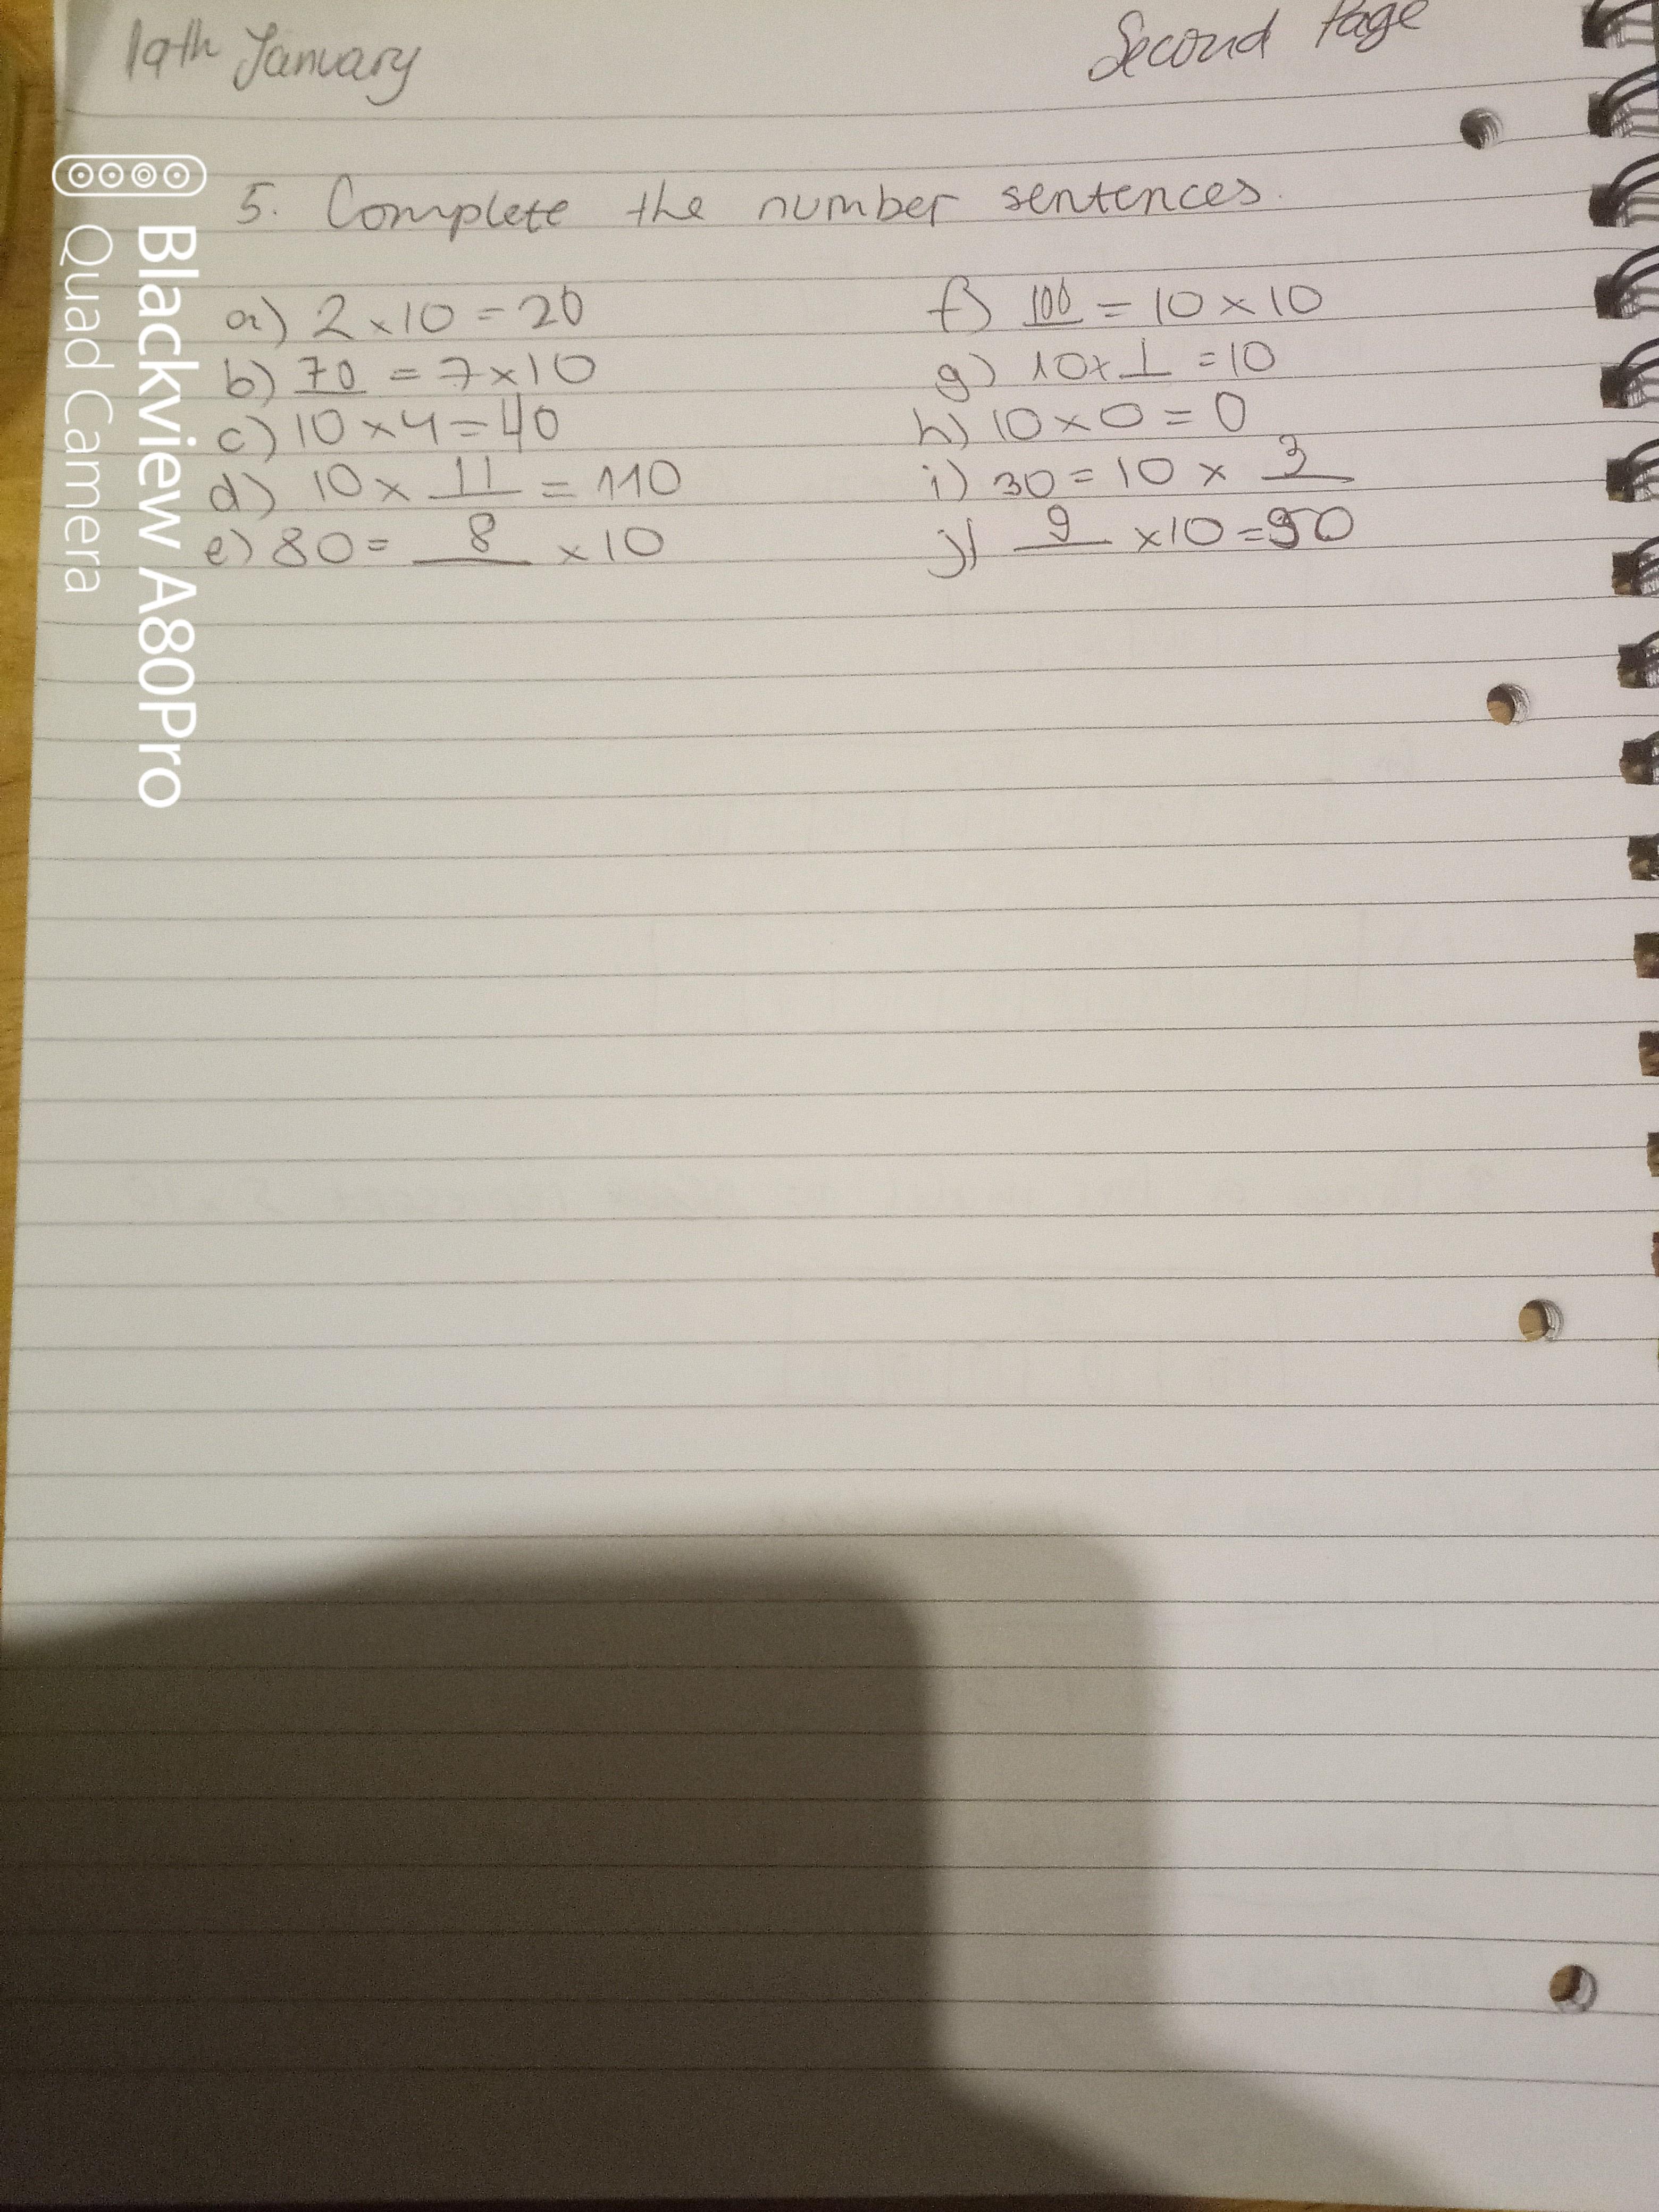 19th January
Second Page
5. Complete the number sentences.
a) 2 x 10 = 20
b) 70 = 7 x 10
c) 10 x 4 = 40
d) 10 x 11 = 110
e) 80 = 8 x 10
f) 100 = 10 x 10
g) 10 x 1 = 10
h) 10 x 0 = 0
i) 30 = 10 x 3
j) 9 x 10 = 90
Blackview A80Pro
Quad Camera